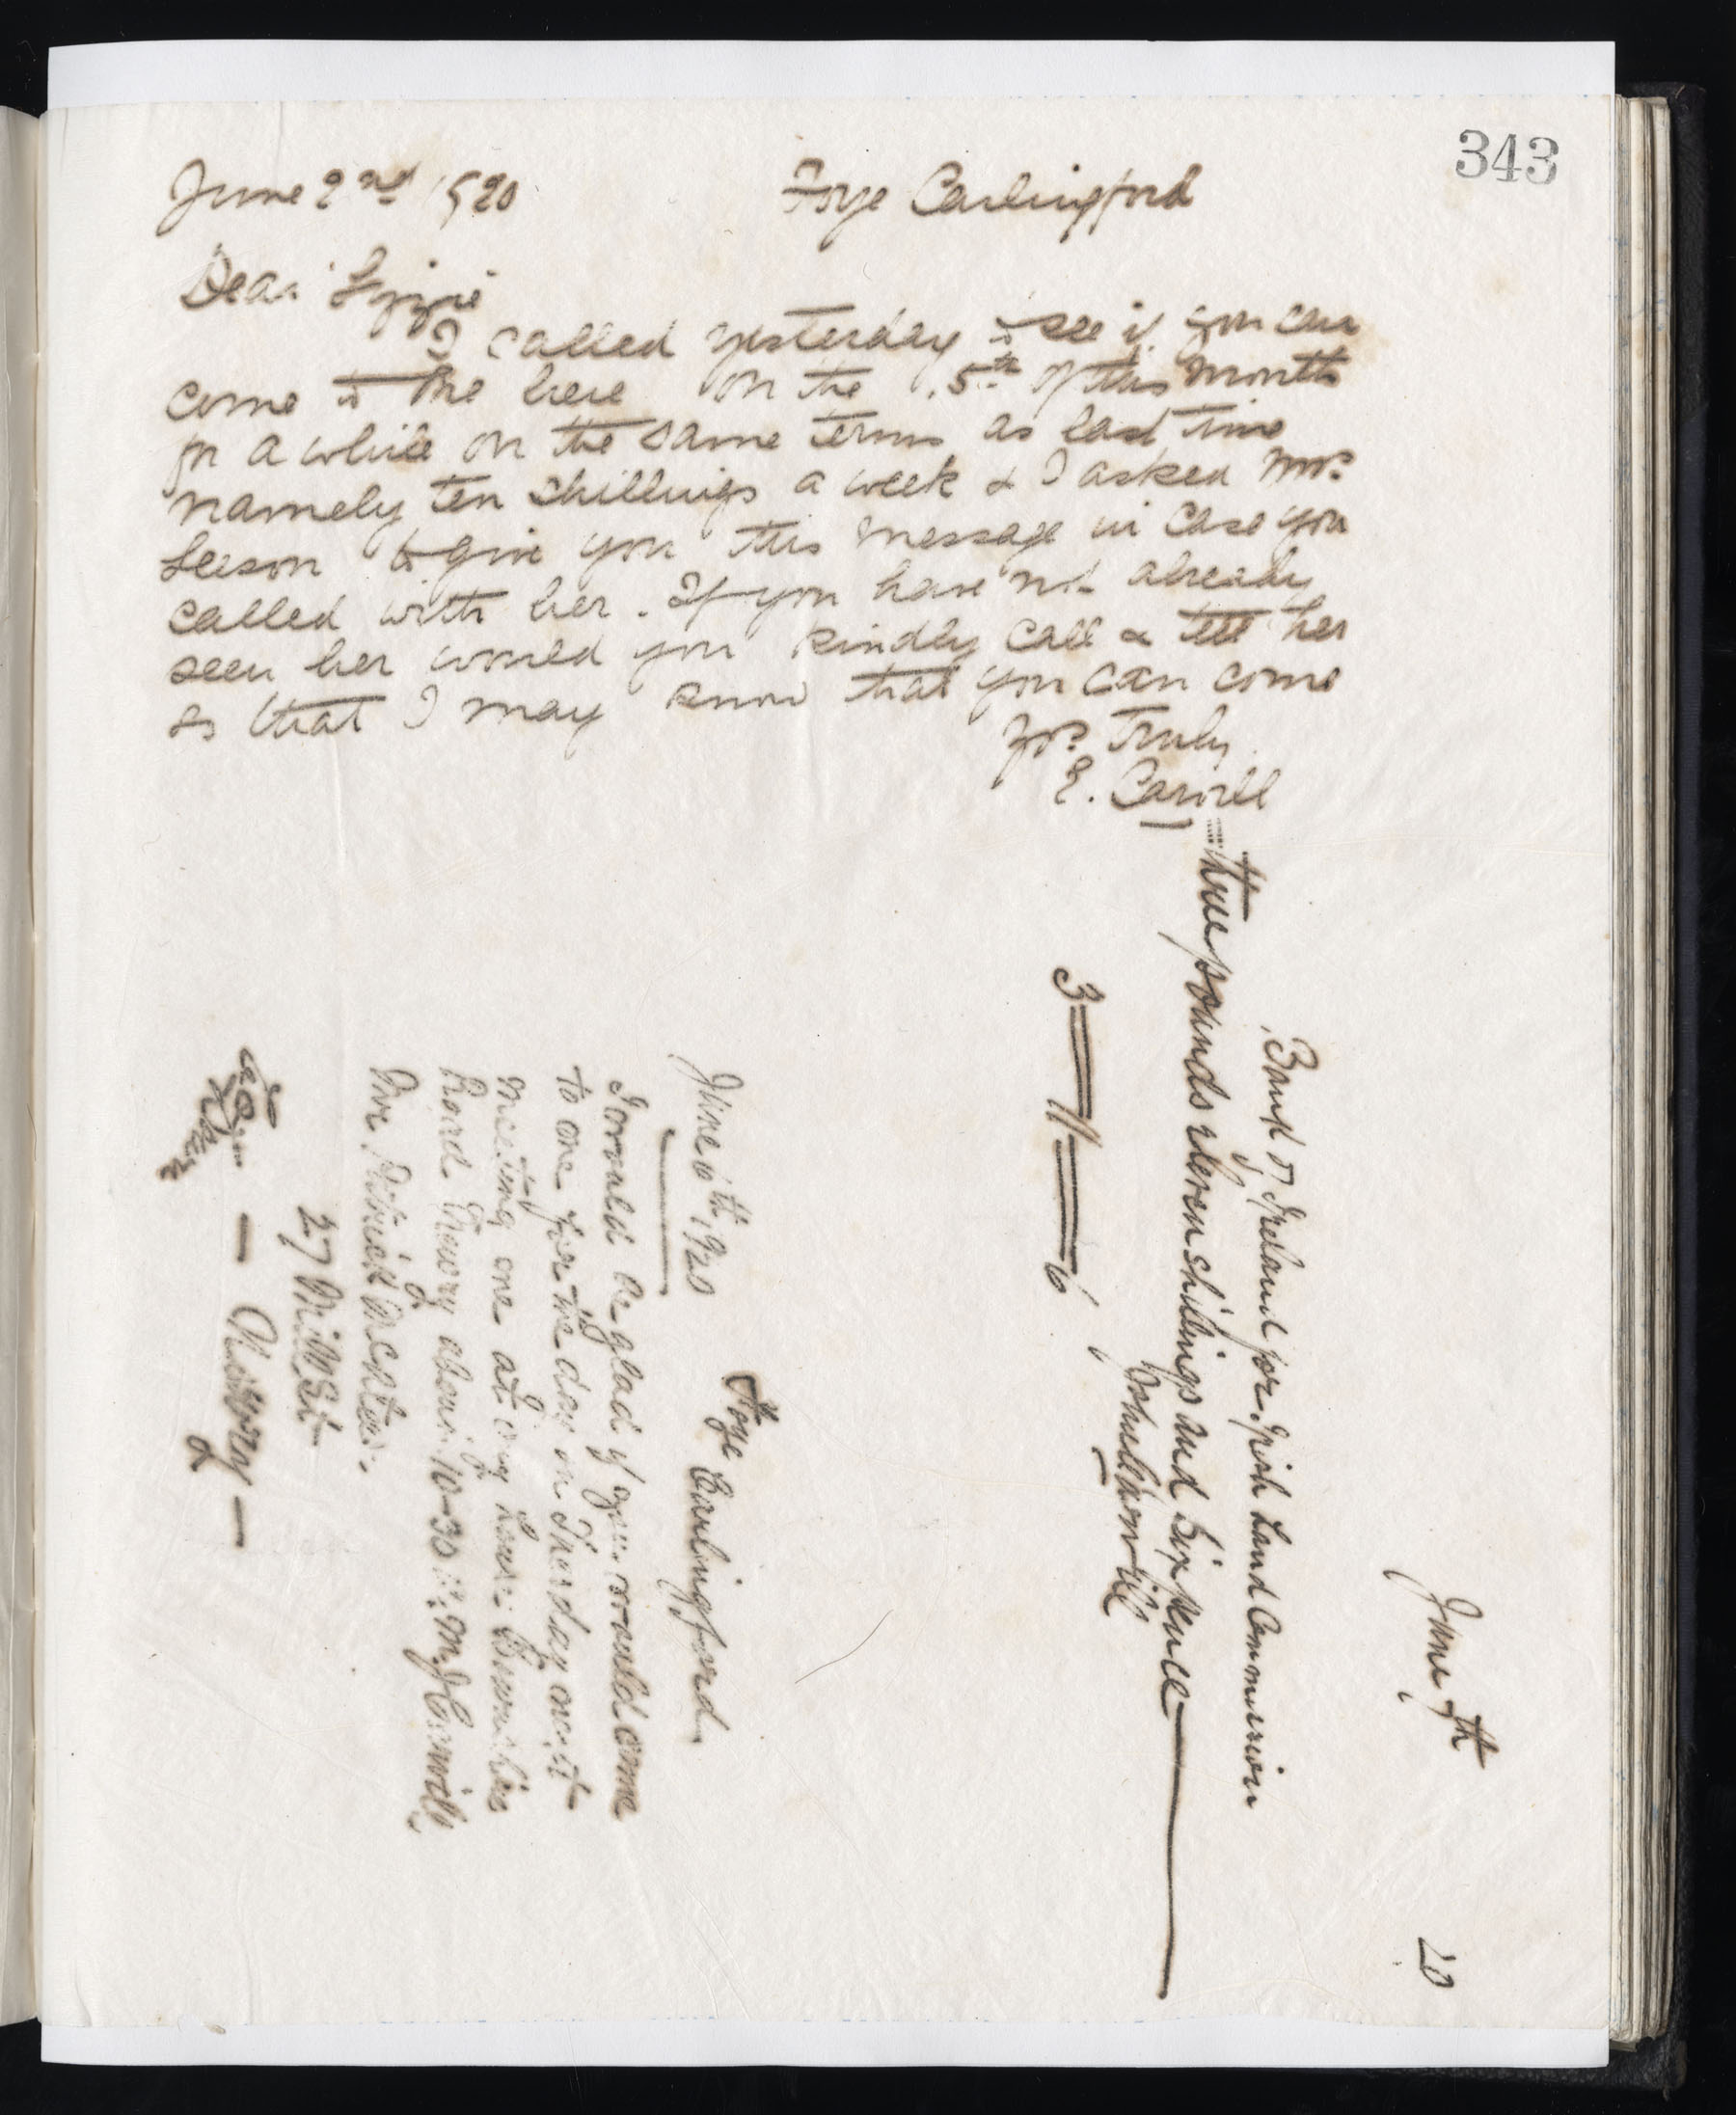 343
June 2nd 1920 Foye Carlingford
Dear Lizzie
I called yesterday to see if you can
come to me here on the 15th of this month
for a while on the same terms as last time
namely ten shillings a week & I asked Mrs
Leeson to give you this message in case you
called with her. If you have not already
seen her would you kindly call & tell her
so that I may know that you can come
Yrs Truly
E. Carvill
June 7th 20
Bank of Ireland for Irish Land Commission
three pounds eleven shillings and sixpence
3 = 11 = 6
John Carvill
June 6th 1920 Foye Carlingford
I would be glad if you would come
to me for the day on Thursday next
meeting me at my house
Road Newry about 10-30 J Carvill
Mr Patrick
27 Mill St
Newry